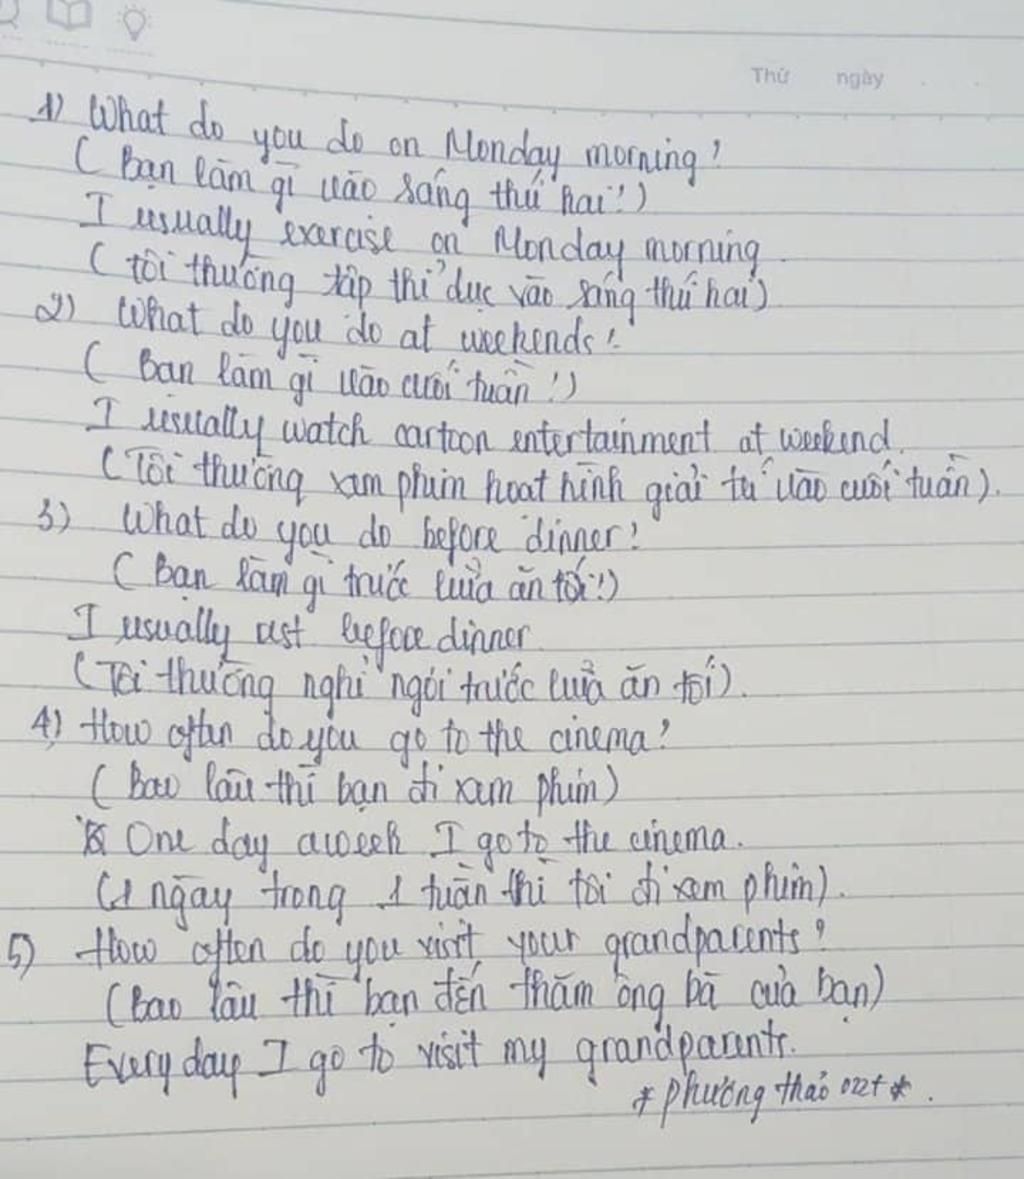 Thứ ngày
1) What do you do on Monday morning?
( Bạn làm gì vào sáng thứ hai?)
I usually exercise on Monday morning.
( tôi thường tập thể dục vào sáng thứ hai)
2) What do you do at weekends?
( Bạn làm gì vào cuối tuần?)
I usually watch cartoon entertainment at weekend.
(Tôi thường xem phim hoạt hình giải trí vào cuối tuần).
3) What do you do before dinner?
( Bạn làm gì trước bữa ăn tối?)
I usually before dinner
(Tôi thường nghỉ ngơi trước bữa ăn tối).
4) How often do you go to the cinema?
( Bao lâu thì bạn đi xem phim)
One day a week I go to the cinema.
(1 ngày trong 1 tuần thì tôi đi xem phim).
5) How often do you visit your grandparents?
(Bao lâu thì bạn đến thăm ông bà của bạn)
Every day I go to visit my grandparents.
* phương thảo *.